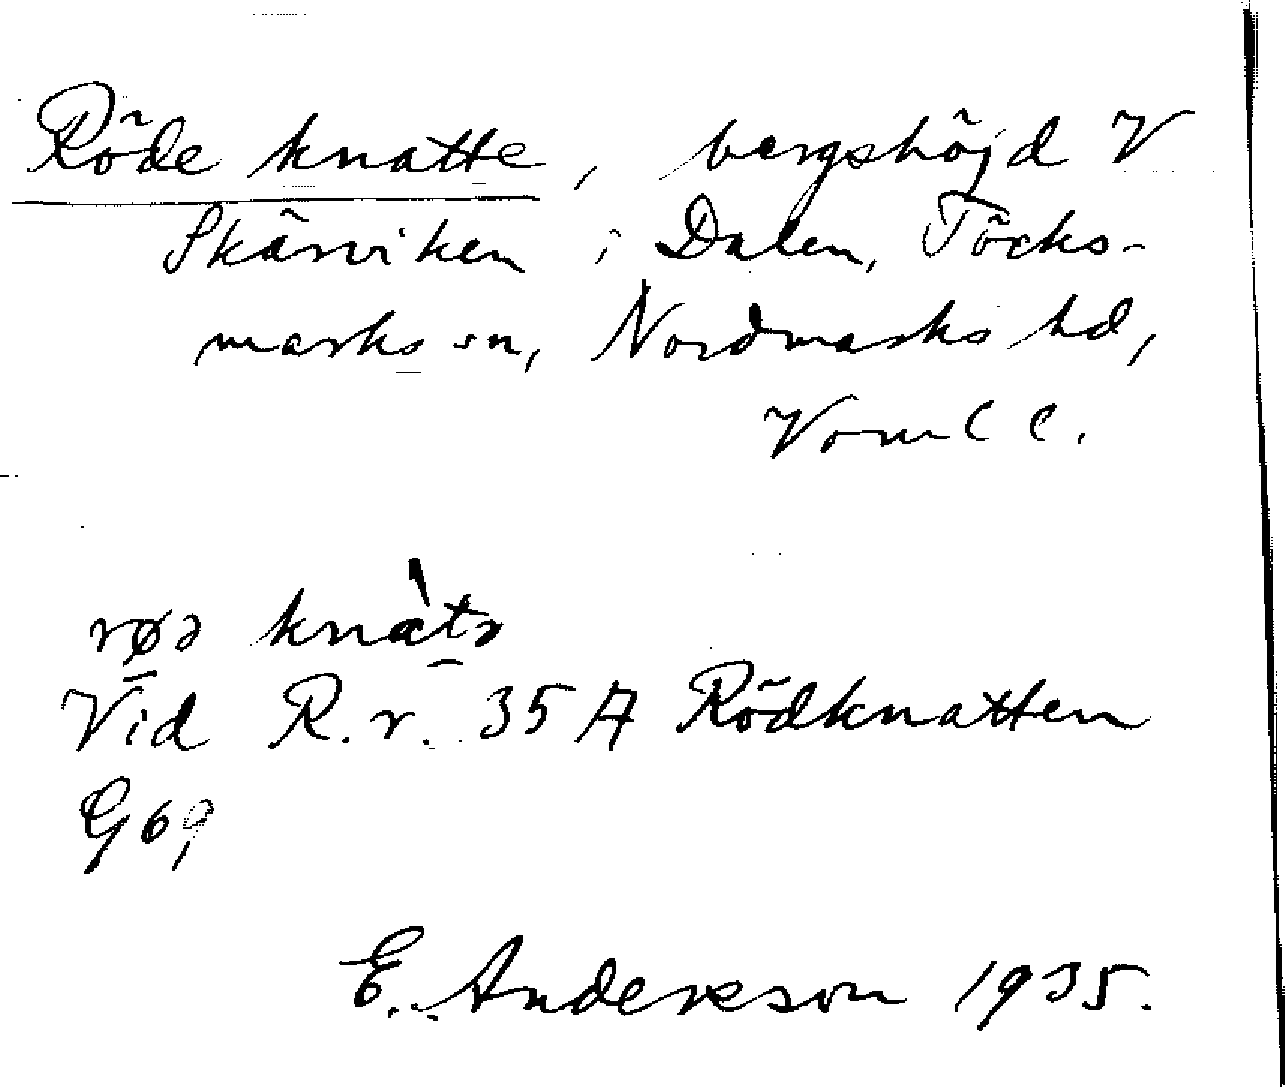 Röde knatte, bergshöjd V
Skärviken i Dalen, Töcks-
marks sn, Nordmarks hd,
Värml l.
røə knàtə
Vid R.r. 35 A Rödknatten
G 69
E. Andersson 1935.